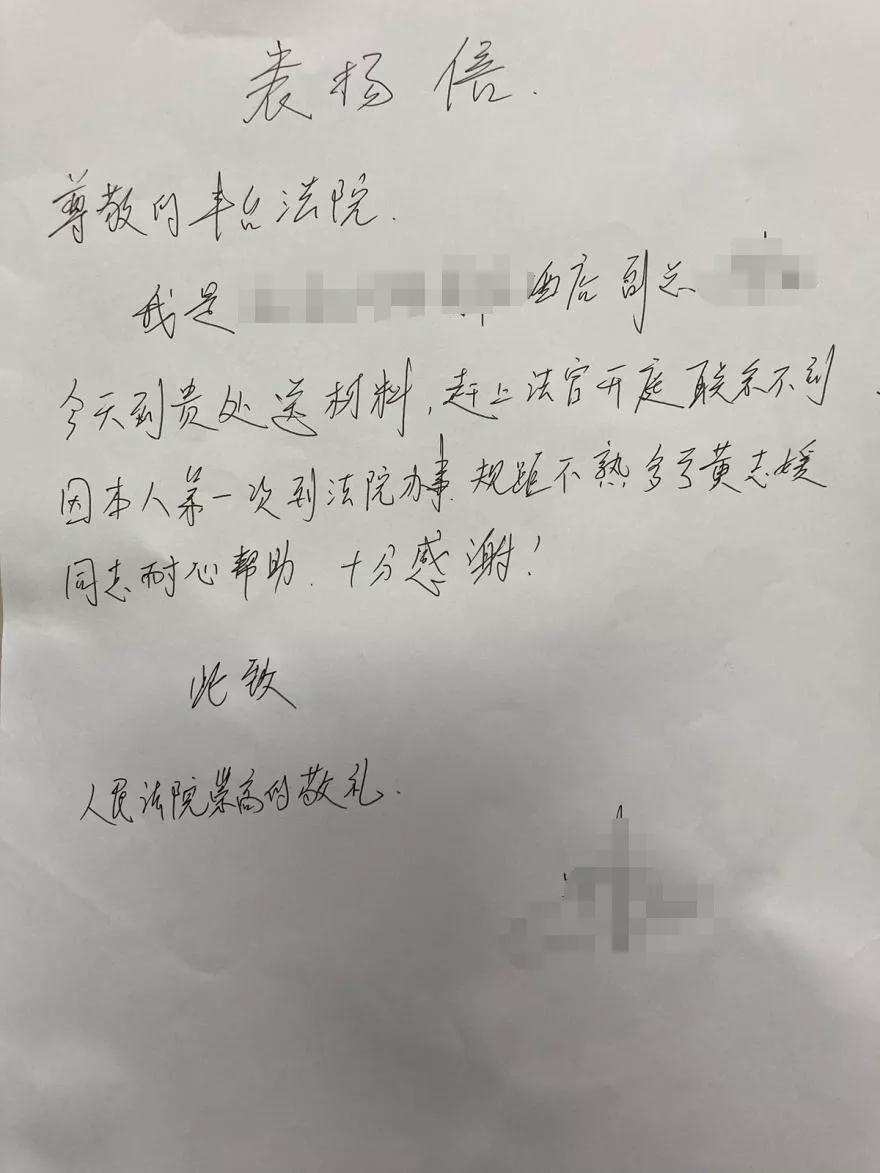 表扬信.
尊敬的丰台法院.
我是 酒店副总
今天到贵处送材料,赶上法官开庭联系不到.
因本人第一次到法院办事.规距不熟多亏黄志媛
同志耐心帮助.十分感谢!
此致
人民法院崇高的敬礼.